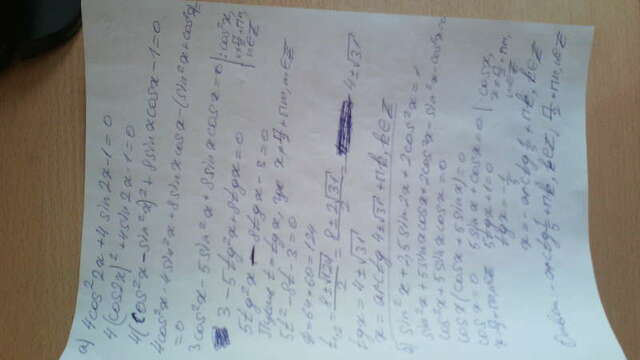 а) 4cos²2x + 4sin2x - 1 = 0
4(cos2x)² + 4sin2x - 1 = 0
4(cos²x - sin²x)² + 8sinxcosx - 1 = 0
4cos²x - 4sin²x + 8sinxcosx - (sin²x + cos²x)
= 0
3cos²x - 5sin²x + 8sinxcosx = 0 | : cos²x,
3 - 5tg²x + 8tgx = 0 x ≠ π/2 + πn, n∈Z
5tg²x - 8tgx - 3 = 0
Пусть t = tgx, где x ≠ π/2 + πn, n∈Z
5t² - 8t - 3 = 0
D = 64 + 60 = 124
t₁,₂ = (8 ± √124)/2 = (8 ± 2√31)/2 = 4 ± √31
tgx = 4 ± √31
x = arctg 4 ± √31 + πk, k∈Z
б) sin²x + 2,5sin2x + 2cos²x = 1
sin²x + 5sinxcosx + 2cos²x - sin²x - cos²x = 0
cos²x + 5sinxcosx = 0
cosx(cosx + 5sinx) = 0
cosx = 0 5sinx + cosx = 0 | : cosx,
x = π/2 + πn, n∈Z 5tgx + 1 = 0 x ≠ π/2 + πn, n∈Z
tgx = -1/5
x = -arctg 1/5 + πk, k∈Z
Ответ: -arctg 1/5 + πk, k∈Z; π/2 + πn, n∈Z